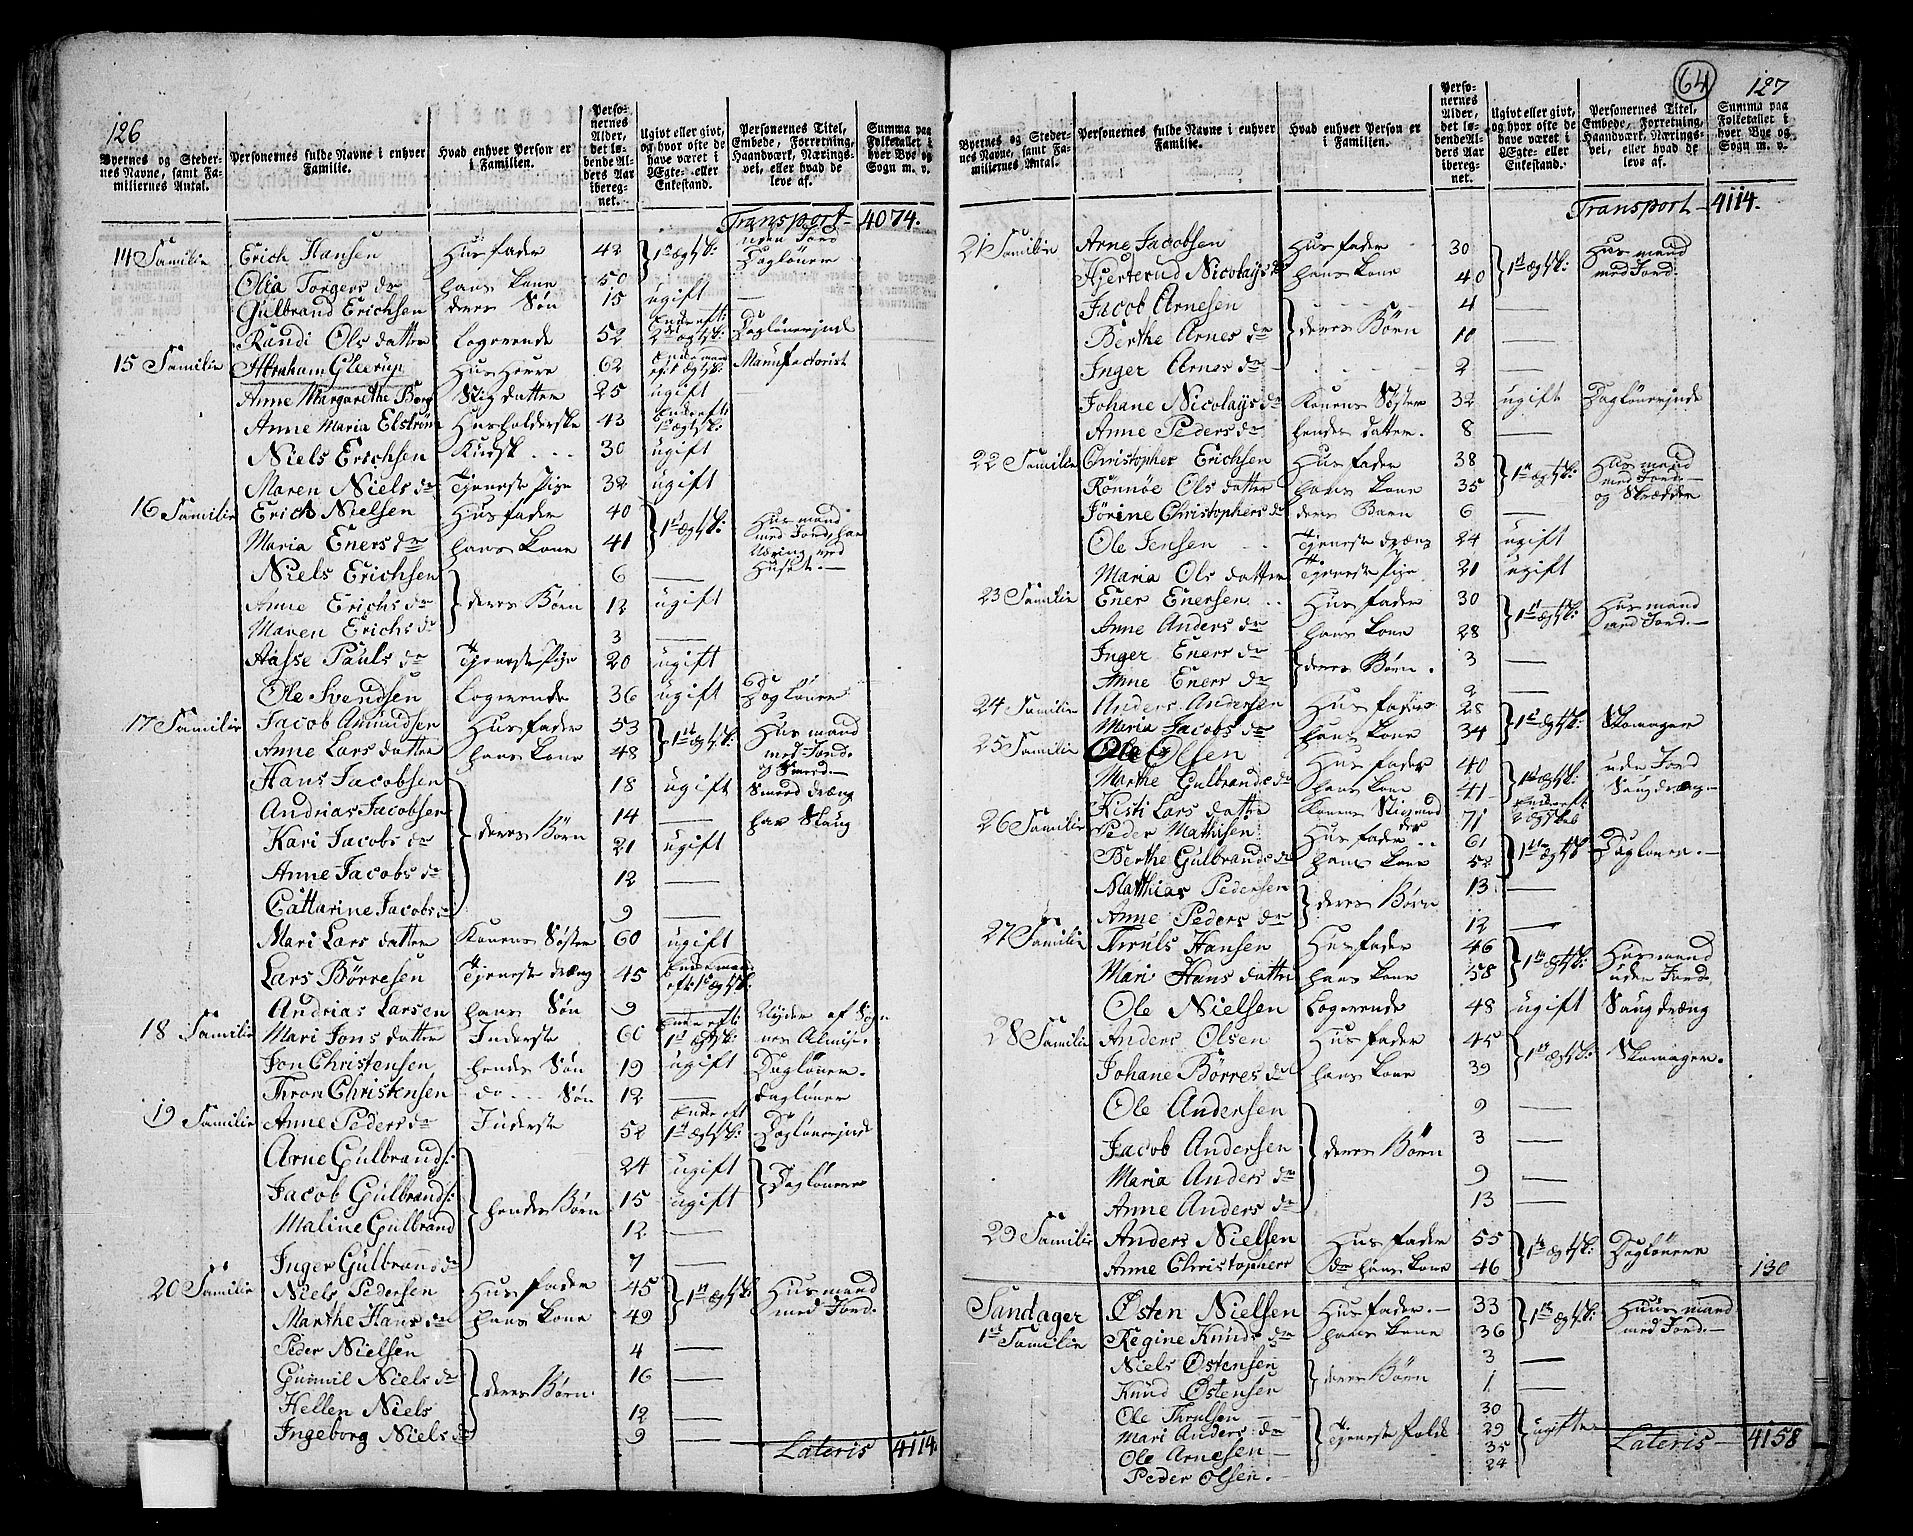 126
Byernes og Stedernes Navne, samt Familiernes Antal.
Personernes fulde Navne i enhver Familie.
Hvad enhver Person er i Familien.
Personernes Alder, det løbende Alders Aar iberegnet.
Ugivt eller givt, og hvor ofte de have været i Ægte- eller Enkestand.
Personernes Titel, Embede, Forretning, Haandværk, Næringsvei, eller hvad de leve af.
Summa paa Folketallet i hver Bye og Sogn m. v.
Transport 4074.
14 Familie Erich Hansen Husfader 42 1ste ægtsk: uden Jord Dagløner
Olia Torgers dr hans Kone 50
Gulbrand Erichsen deres Søn 15 ugift —
Randi Ols datter Logerende 52 Enke eft: 2det ægtsk: Daglønerinde
15 Familie Abraham Gleerup Hus Herre 62 Enkemand eft 1 ægtsk: Manufactorist
Anne Margarethe Borg Stifdatter 25 ugift
Anne Maria Elstrøm Husholderske 43 Enke eft: 1ste ægtsk:
Niels Erichsen Kudsk 30 ugift
Maren Niels dr Tjeneste Pige 32 ugift
16 Familie Erich Nielsen Husfader 40 1ste ægtsk: Husmand med Jord, har Næring med Huset.
Maria Eners dr hans Kone 41
Niels Erichsen deres Børn 6 —
Anne Erichs dr 12 ugift
Maren Erichs dr 3 —
Aasse Pauls dr Tjeneste Pige 20 ugift
Ole Svendsen Logerende 36 ugift Dagløner
17 Familie Jacob Amundsen Husfader 53 1ste ægtsk: Husmand med Jord og Smed.
Anne Lars datter hans Kone 48
Hans Jacobsen deres Børn 18 ugift Smeed dræng
Andrias Jacobsen 14 — paa Skaug
Kari Jacobs dr 21 ugift
Anne Jacobs dr 12 —
Cattarine Jacobs dr 9 —
Mari Lars datter Konens Søster 60 ugift
Lars Børresen Tjeneste dræng 45 Enkemand eft 1 ægtsk:
Andrias Larsen hans Søn 9 —
18 Familie Mari Jons datter Inderste 60 Enke eft: 1ste ægtsk: Nyder af Sognets Almisse.
Jon Christensen hendes Søn 19 ugift Dagløner.
Thron Christensen do Søn 12 — dagløner
19 Familie Anne Peders dr Inderste 52 Enke eft 1ste ægtsk: Daglønerinde
Arne Gulbrands: hendes Børn 24 ugift Dagløner
Jacob Gulbrands: 15 ugift
Maline Gulbrand 12 —
Inger Gulbrans dr 7 —
20 Familie Niels Pedersen Husfader 45 1ste ægtsk: Husmand med Jord.
Marthe Hans dr hans Kone 49
Peder Nielsen deres Børn. 4 —
Gunnil Niels dr 16 —
Hellen Niels 12 —
Ingeborg Niels dr 9 —
Lateris 4114.
64
127
Byernes og Stedernes Navne, samt Familiernes Antal.
Personernes fulde Navne i enhver Familie.
Hvad enhver Person er i Familien.
Personernes Alder, det løbende Alders Aar iberegnet.
Ugivt eller givt, og hvor ofte de have været i Ægte- eller Enkestand.
Personernes Titel, Embede, Forretning, Haandværk, Næringsvei, eller hvad de leve af.
Summa paa Folketallet i hver Bye og Sogn m. v.
Transport 4114.
21 Familie Arne Jacobsen Husfader 30 1ste ægtsk: Husmand med Jord.
Hjerterud Nicolays dr hans Kone 40
Jacob Arnesen deres Børn 4 —
Berthe Arnes dr 10 —
Inger Arnes dr 2 —
Johane Nicolays dr Konens Søster 32 ugift Daglønerinde
Anne Peders dr hendes datter. 8 —
22 Familie Christopher Erichsen Husfader 38 1ste ægtsk: Husmand med Jord og Skrædder
Rønnøe Ols datter hans Kone 35
Jørine Christophers dr deres Barn 6 —
Ole Jensen Tjeneste dræng 24 ugift
Maria Ols datter Tjeneste Pige 21 ugift
23 Familie Ener Enersen Husfader 30 1ste ægtsk: Husmand med Jord.
Anne Anders dr hans Kone 28
Inger Eners dr deres Børn. 3 —
Anne Eners dr 2 —
24 Familie Anders Andersen Husfader 28 1ste ægtsk: Skomager
Maria Jacobs dr hans Kone 34
25 Familie Ole Olsen Husfader 40 1ste ægtsk: uden Jord Saugdræng.
Marthe Gulbrands dr hans Kone 41
Kisti Lars datter Konens Stifmoder 71 Enke eft 2 ægtsk:
26 Familie Peder Mathisen Husfader 61 1ste ægtsk Dagløner.
Berthe Gulbrands dr hans Kone 52
Matthias Pedersen deres Børn 13 —
Anne Peders dr 12 —
27 Familie Thruls Hansen Husfader 46 1ste ægtsk: Husmand uden Jord.
Mari Hans datter hans Kone 58
Ole Nielsen Logerende 48 ugift Saugdræng
28 Familie Anders Olsen Husfader 45 1ste ægtsk: Skomager.
Johane Børres dr hans Kone 39
Ole Andersen deres Børn 9 —
Jacob Andersen 3 —
Maria Anders dr 9 —
Anne Anders dr 13 —
29 Familie Anders Nielsen Husfader 55 1ste ægtsk: Dagløner
Anne Christophers dr hans Kone 46
130
Sandager Østen Nielsen Husfader. 33 1ste ægtsk: Huusmand med Jord.
1ste Familie Regine Knuds dr hans Kone 36
Niels Østensen deres Børn 3 —
Knud Østensen 1 —
Ole Thrulsen Tjeneste folk 30 ugifte
Mari Anders dr 29
Ole Arnesen 35
Peder Olsen. 24
Lateris 4158